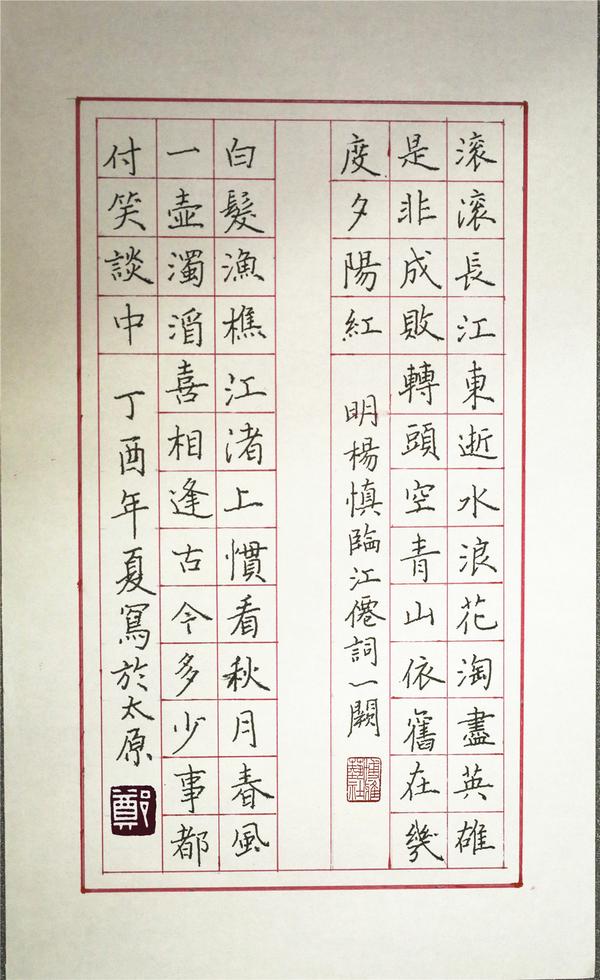 滚滚長江東逝水浪花淘盡英雄
是非成敗轉頭空青山依舊在幾
度夕陽紅
明楊慎臨江僊詞一闕
白髮漁樵江渚上慣看秋月春風
一壺濁酒喜相逢古今多少事都
付笑談中
丁酉年夏寫於太原
鄭